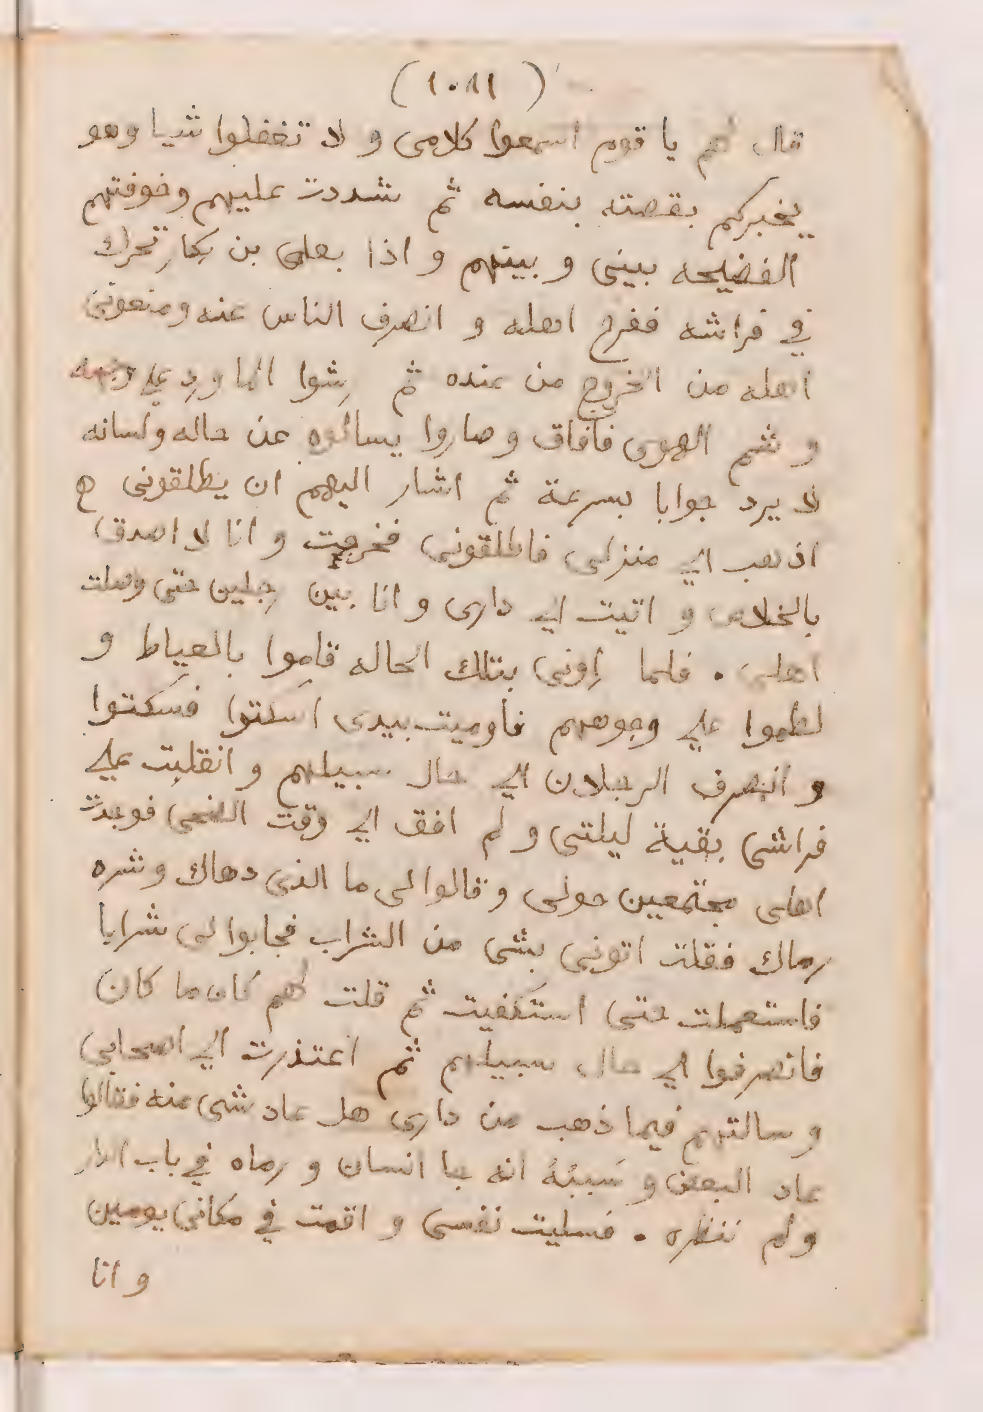 (١٠٨١)
قال لهم يا قوم اسمعوا كلامى و لا تغفلوا شيا وهو
يخبركم بقصته بنفسه ثم شددت عليهم وخوفتهم
الفضيحه بينى و بينهم و اذا بعلى بن بكار تحرك
في فراشه ففرح اهله و انصرف الناس عنه ومنعونى
اهله من الخروج من عنده ثم رشوا الماورد على وجهه
و شم الهوى فافاق و صاروا يسالوه عن حاله ولسانه
لا يرد جوابا بسرعة ثم اشار اليهم ان يطلقونى ح
اذهب الى منزلى فاطلقونى فخرجت و انا لا اصدق
بالخلاص و اتيت الى دارى و انا بين رجلين حتى وصلت
اهلى . فلما راونى بتلك الحاله قاموا بالعياط و
لطموا على وجوههم فاوميت بيدى اسكتوا فسكتوا
و انصرف الرجلان الى حال سبيلهم و انقلبت على
فراشى بقية ليلتى و لم افق الى وقت الضحى فوجدت
اهلى مجتمعين حولى و قالوا لى ما الذى دهاك وشره
رماك فقلت اتونى بشى من الشراب فجابوا لى شرابا
فاستعملت حتى استكفيت ثم قلت لهم كان ما كان
فانصرفوا الى حال سبيلهم ثم اعتذرت الى اصحابى
و سالتهم فيما ذهب من دارى هل عاد شى منه فقالوا
عاد البعض و سَببُهُ انه جا انسان و رماه في باب الدار
و لم ننظره . فسليت نفسى و اقمت في مكانى يومين
و انا